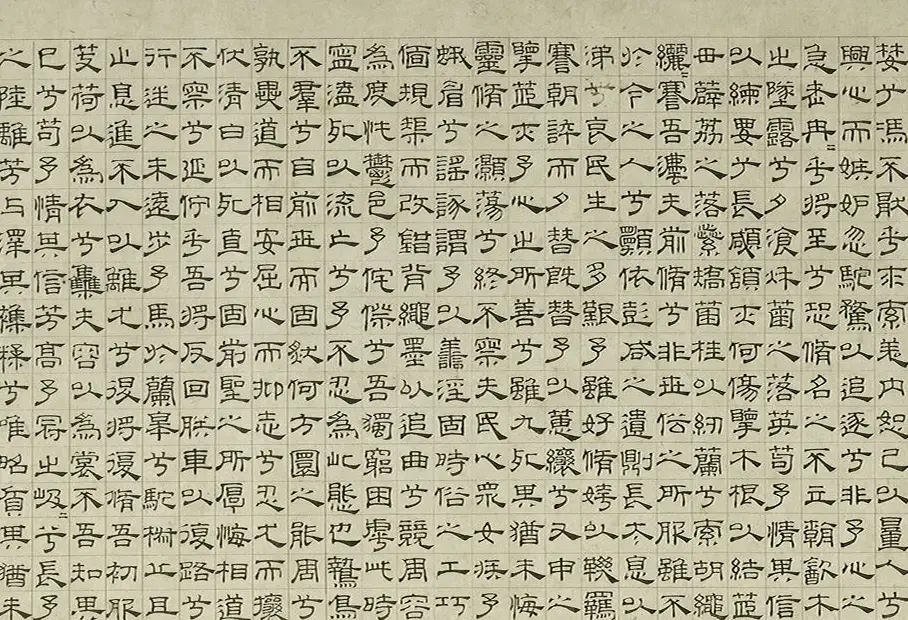 婪兮馮不猒乎求索羌内恕己以量人兮
興心而嫉妒忽馳騖以追逐兮非予心之
急老冉=乎將至兮恐脩名之不立朝飲木
之墜露兮夕湌秋菊之落英苟予情其信
以練要兮長顑頷亦何傷擥木根以結茝
毌薜荔之落蘂矯菌桂以紉蘭兮索胡繩
纚=謇吾灋夫前脩兮非世俗之所服雖不
於今之人兮顧依彭咸之遺則長太息以
涕兮哀民生之多艱予雖好脩姱以鞿羈
謇朝誶而夕替既替予以蕙纕兮又申之
擥茝亦予心之所善兮雖九死其猶未悔
靈脩之灝蕩兮終不察夫民心眾女疾予
蛾眉兮謠諑謂予以善淫固時俗之工巧
偭規榘而改錯背繩墨以追曲兮競周容
為度忳鬱邑予侘傺兮吾獨窮困虖此時
寍溘死以流亡兮予不忍為此態也鷙鳥
不羣兮自前世而固然何方圜之能周兮
孰異道而相安屈心而抑志兮忍尤而攘
伏清白以死直兮固前聖之所厚悔相道
不察兮延佇乎吾將反回朕車以復路兮
行迷之未遠步予馬於蘭皋兮馳椒丘且
止息進不入以離尤兮退將復脩吾初服
芰荷以為衣兮集夫容以為裳不吾知其
已兮苟予情其信芳高予冠之岌=兮長予
之陸離芳與澤其雜糅兮唯昭質其猶未